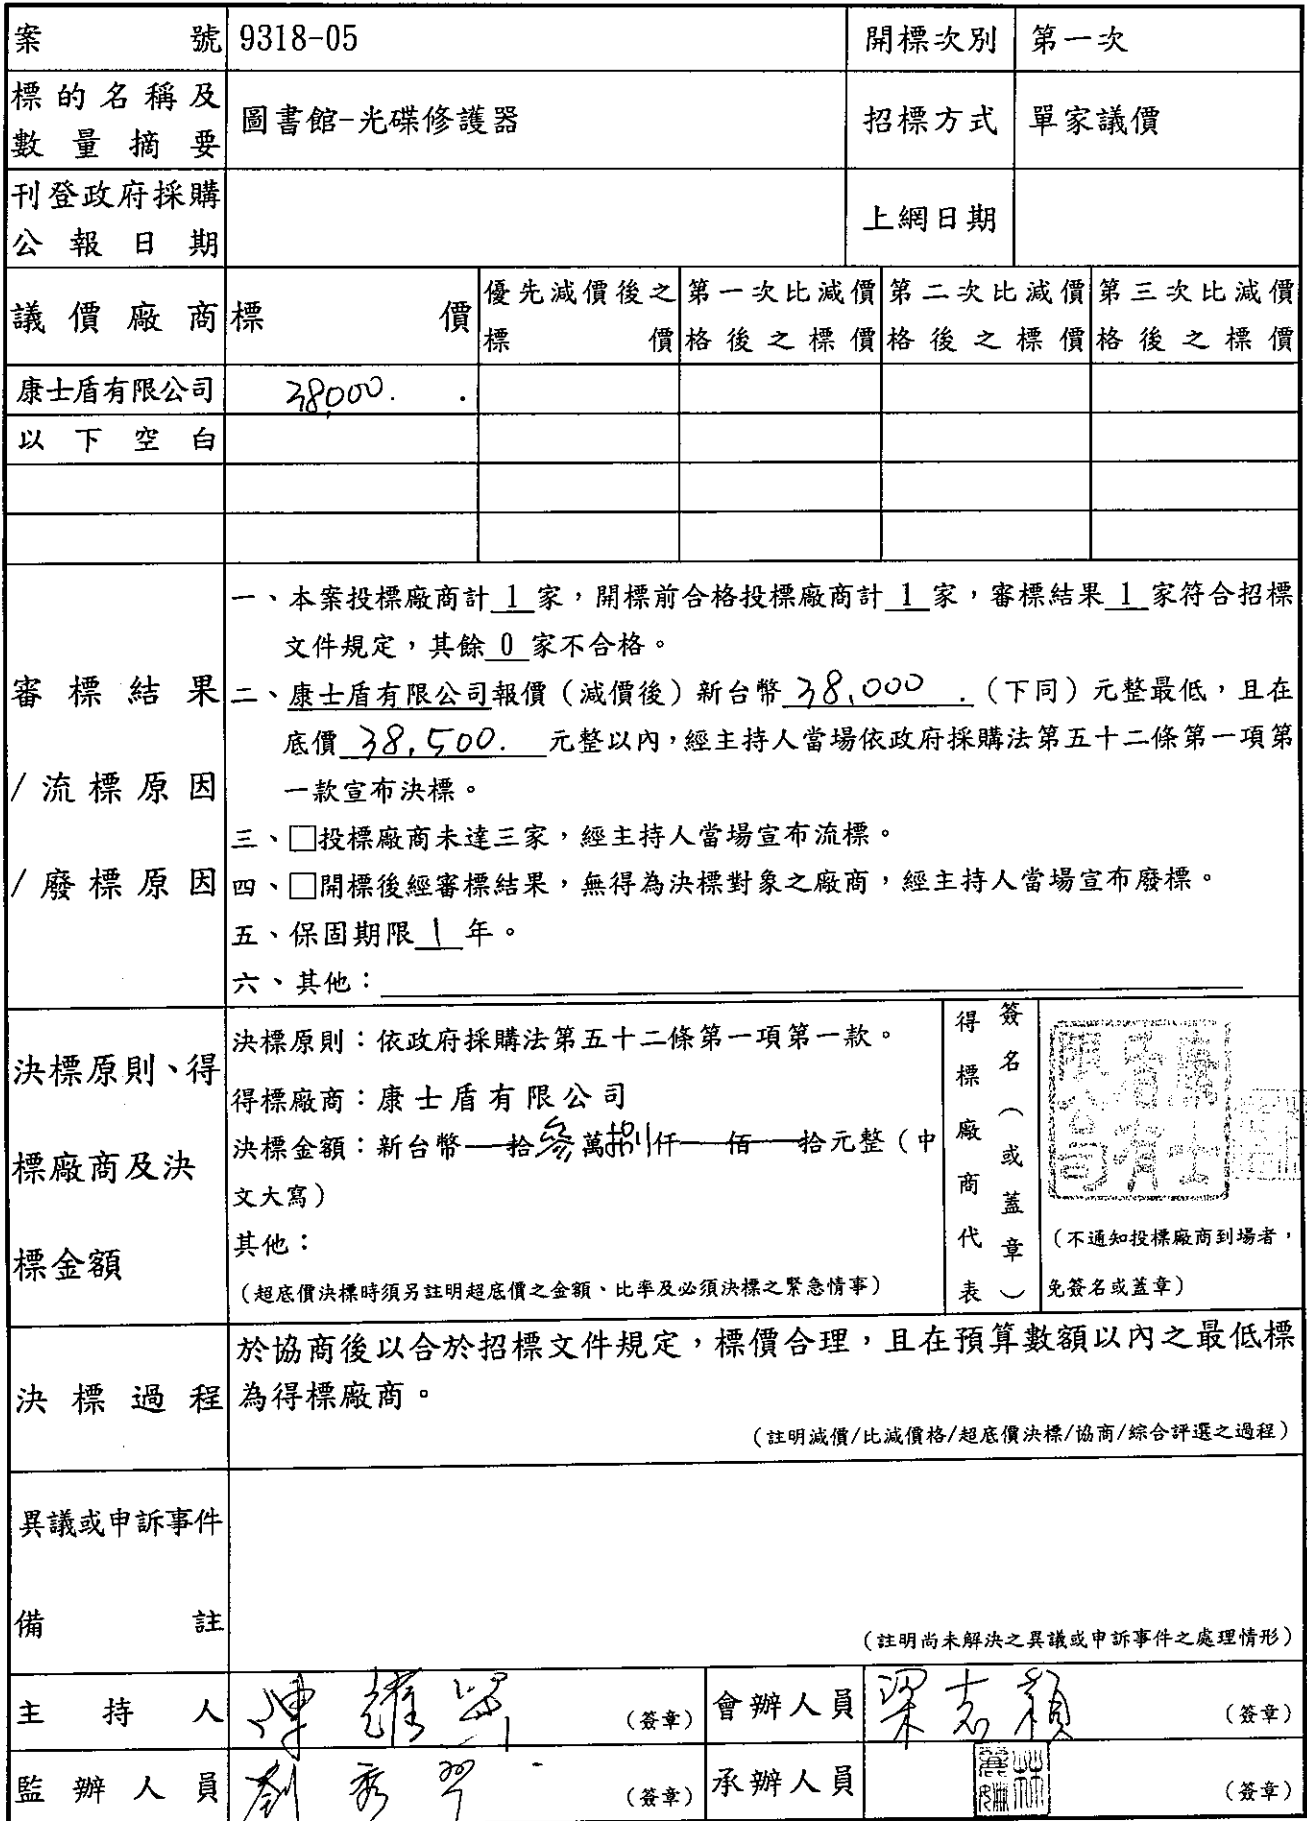 案號 9318-05 開標次別 第一次
標的名稱及
數量摘要 圖書館-光碟修護器 招標方式 單家議價
刊登政府採購
公報日期 上網日期
議價廠商 標價 優先減價後之標價 第一次比減價格後之標價 第二次比減價格後之標價 第三次比減價格後之標價
康士盾有限公司 38,000.
以下空白
審標結果
/流標原因
/廢標原因
一、本案投標廠商計 1 家,開標前合格投標廠商計 1 家,審標結果 1 家符合招標
文件規定,其餘 0 家不合格。
二、康士盾有限公司報價(減價後)新台幣 38,000 .(下同)元整最低,且在
底價 38,500. 元整以內,經主持人當場依政府採購法第五十二條第一項第
一款宣布決標。
三、□投標廠商未達三家,經主持人當場宣布流標。
四、□開標後經審標結果,無得為決標對象之廠商,經主持人當場宣布廢標。
五、保固期限 1 年。
六、其他:
決標原則、得
標廠商及決
標金額
決標原則:依政府採購法第五十二條第一項第一款。
得標廠商:康士盾有限公司
決標金額:新台幣 拾參萬捌仟 佰 拾元整(中
文大寫)
其他:
(超底價決標時須另註明超底價之金額、比率及必須決標之緊急情事)
得標廠商代表
簽名(或蓋章)
康士盾有限公司
(不通知投標廠商到場者,
免簽名或蓋章)
決標過程
於協商後以合於招標文件規定,標價合理,且在預算數額以內之最低標
為得標廠商。
(註明減價/比減價格/超底價決標/協商/綜合評選之過程)
異議或申訴事件
備註
(註明尚未解決之異議或申訴事件之處理情形)
主持人 (簽章) 會辦人員 梁志穎 (簽章)
監辦人員 劉秀 (簽章) 承辦人員 林 (簽章)